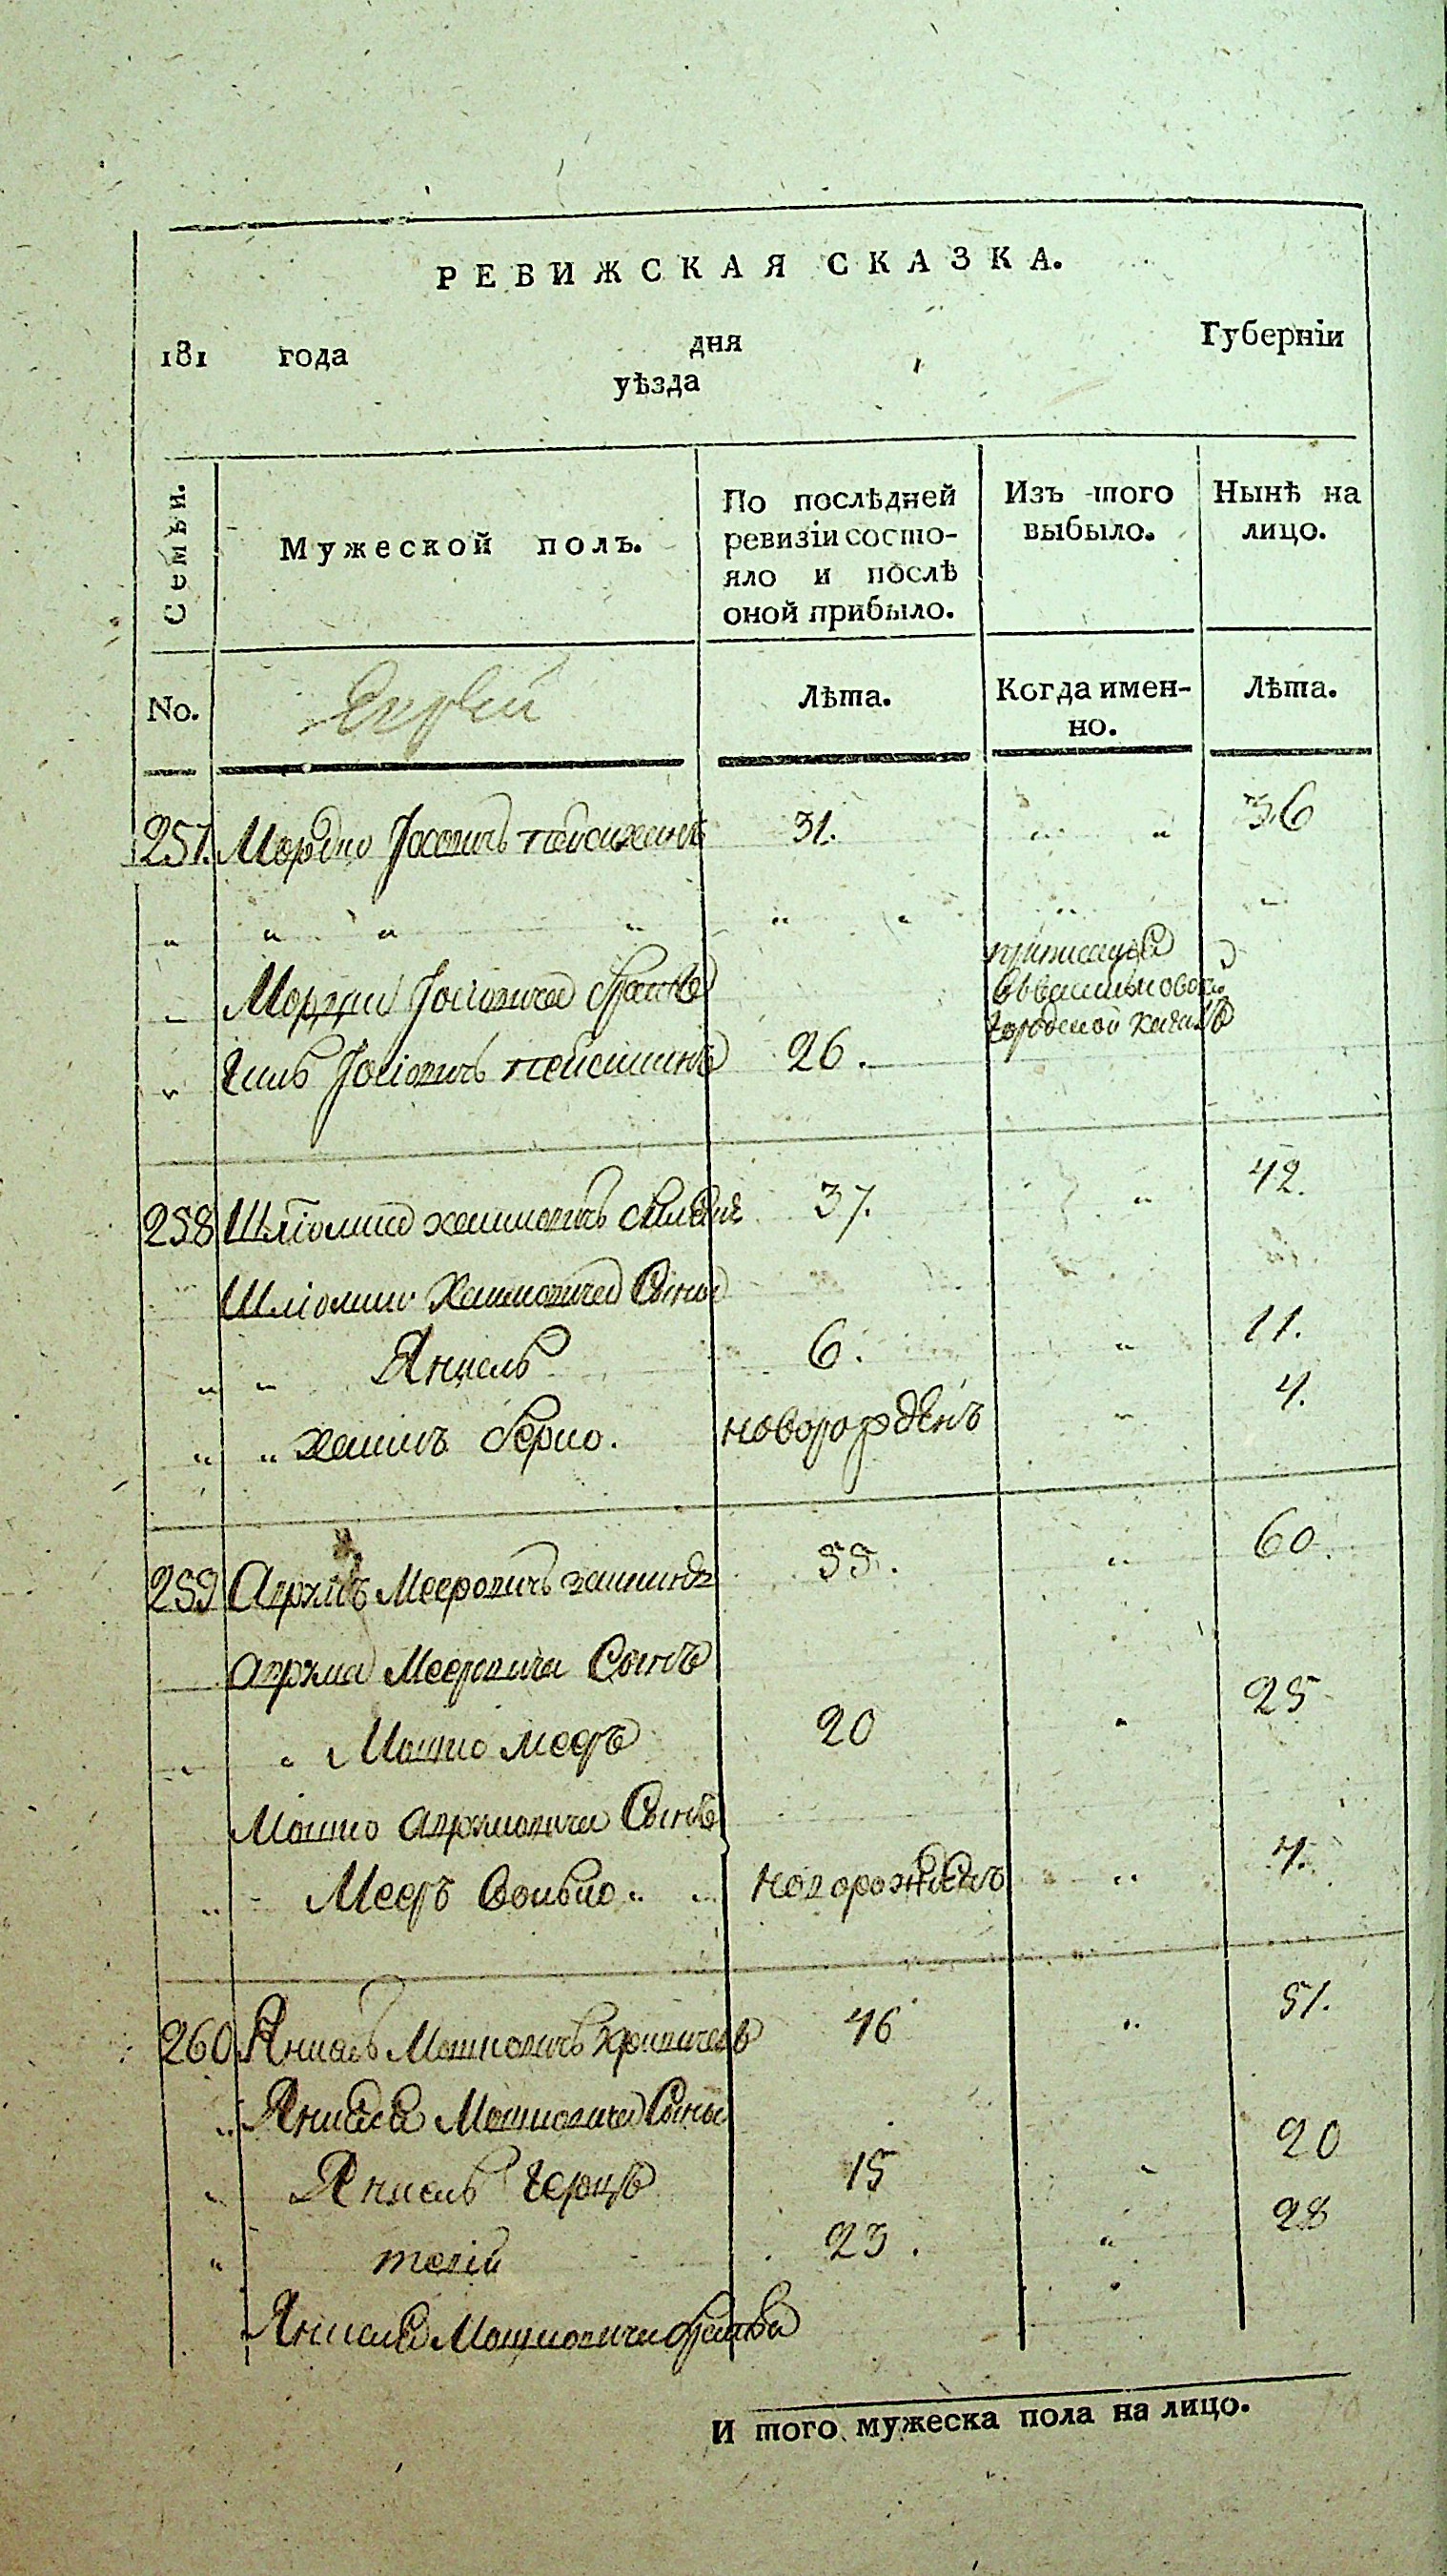 РЕВИЖСКАЯ СКАЗКА.
181 года дня Губерніи
уѣзда
Семьи.
Мужеской полъ.
По послѣдней ревизіи состо-яло и послѣ оной прибыло.
Изъ того выбыло.
Нынѣ на лицо.
No. Еврей Лѣта. Когда имен-но. Лѣта.
257. Мордко Іосіовичъ 31. " " 36
" " " " " " " "
" Мордки Іосіовича братъ
городской кагалъ
" Гиль Іосіовичъ 26.
258 Шліомко Хаимовичъ 37. " 42.
Шліомки Хаимовича Сыны
" " Янкель 6. " 11.
" " Хаимъ Берко. новорожденъ " 4.
259 Аврумъ Мееровичъ 55. " 60.
Аврума Мееровича Сынъ
" " Мошко Мееръ 20 " 25
Мошко Аврумовича Сынъ
" Мееръ Волько " " новорожденъ " 4.
260 Янкель Мошковичъ 46 " 51.
" Янкеля Мошковича Сыны
" Янкель Герцъ 15 " 20
" 23. " 28
Янкеля Мошковича братья
И того мужеска пола на лицо.